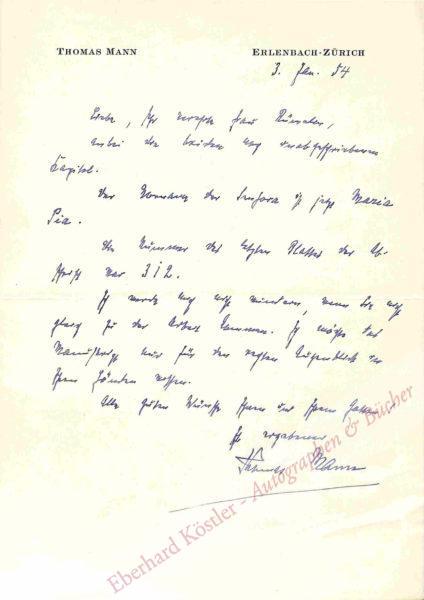 THOMAS MANN ERLENBACH-ZÜRICH
3. Jan. 54
Liebe, sehr verehrte Frau
anbei die beiden noch
Kapitel.
Der Vorname der Senhora ist jetzt Maria
Pia.
Die Nummer des letzten Blattes der Ab-
schrift war 312.
Ich werde mich nicht wundern, wenn Sie nicht
gleich zu der Arbeit kommen. Ich möchte das
Manuskript nur für den rechten Augenblick in
Ihren Händen wissen.
Alle guten Wünsche Ihnen und Ihrem
Ihr ergebener
Thomas Mann
Eberhard Köstler - Autographen & Bücher